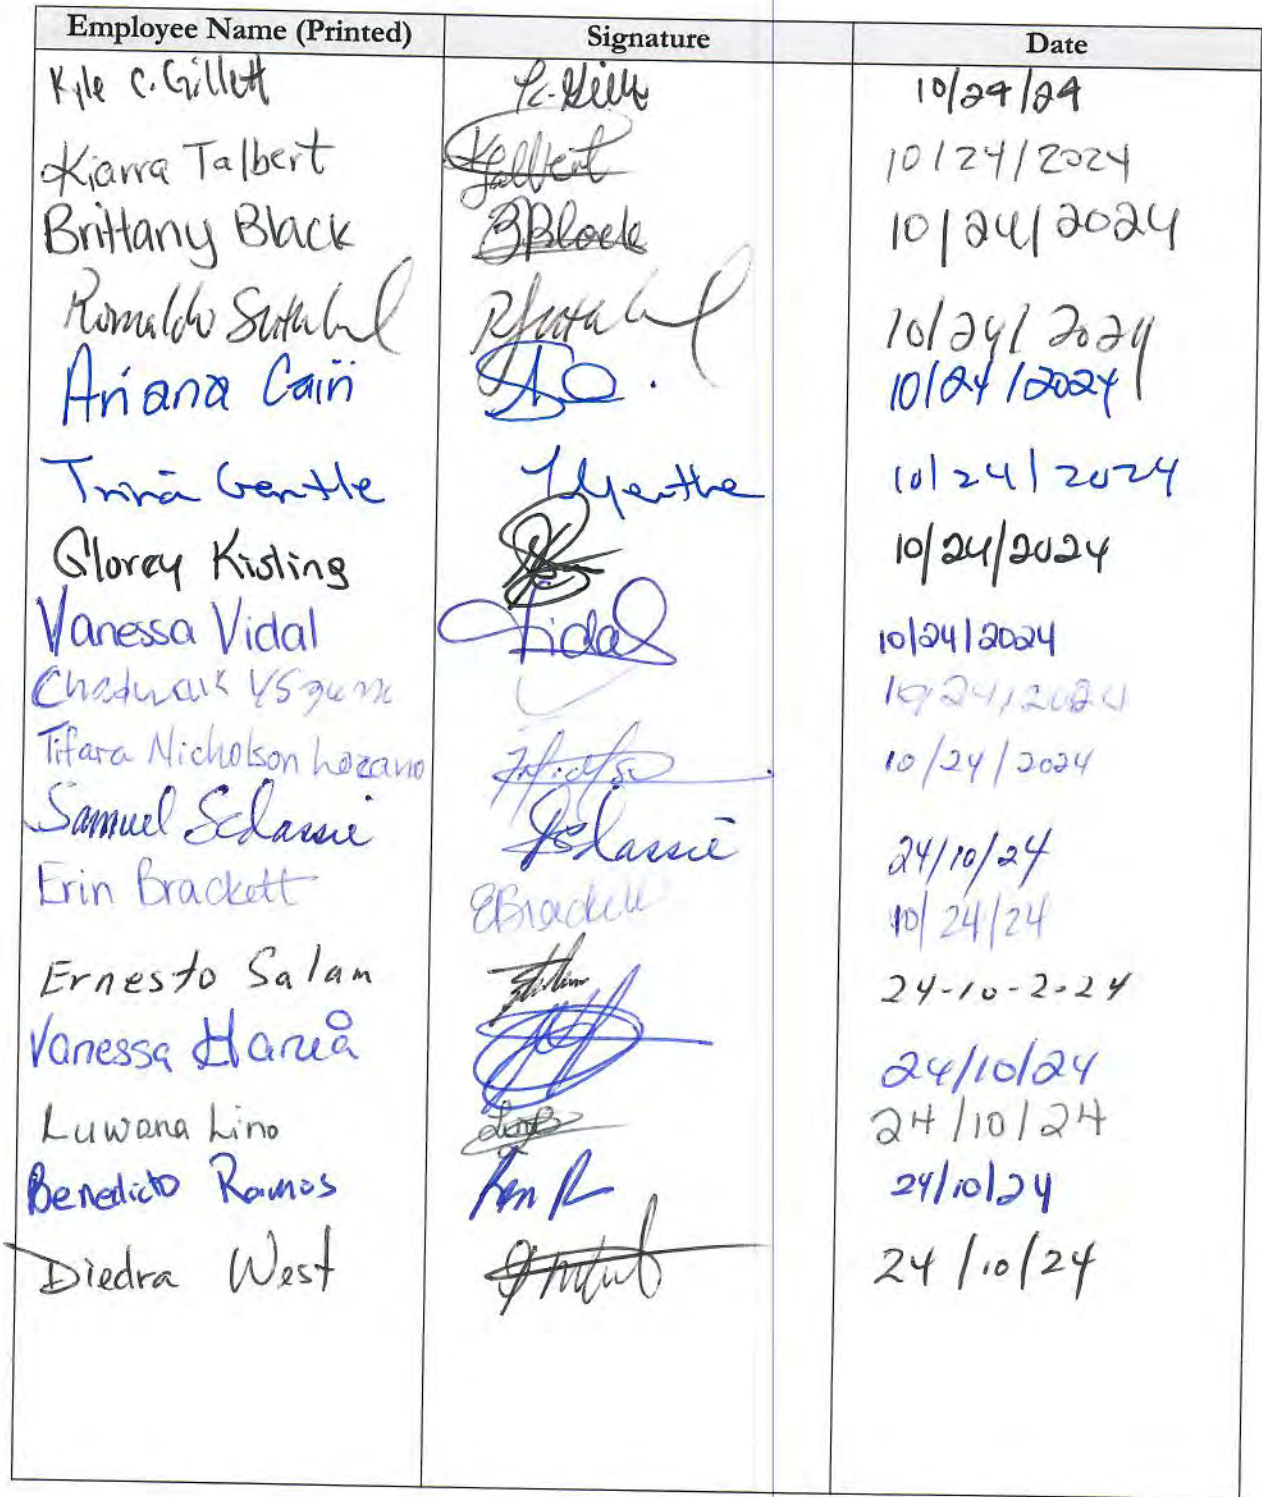 Employee Name (Printed) Signature Date
Kyle C. Gillett 10/24/24
Kiarra Talbert KTalbert 10/24/2024
Brittany Black BBlack 10/24/2024
Romaldo 10/24/2024
Ariana Cain 10/24/2024
Trina Gentle TGentle 10/24/2024
Glorey Kisling 10/24/2024
Vanessa Vidal Vidal 10/24/2024
10/24/2024
Tifara Nicholson Lozano 10/24/2024
Samuel Selassie SSelassie 24/10/24
Erin Brackett EBrackett 10/24/24
Ernesto Salam 24-10-2024
Vanessa 24/10/24
Luwana Lino 24/10/24
Benedicto Ramos Ben R 24/10/24
Diedra West 24/10/24